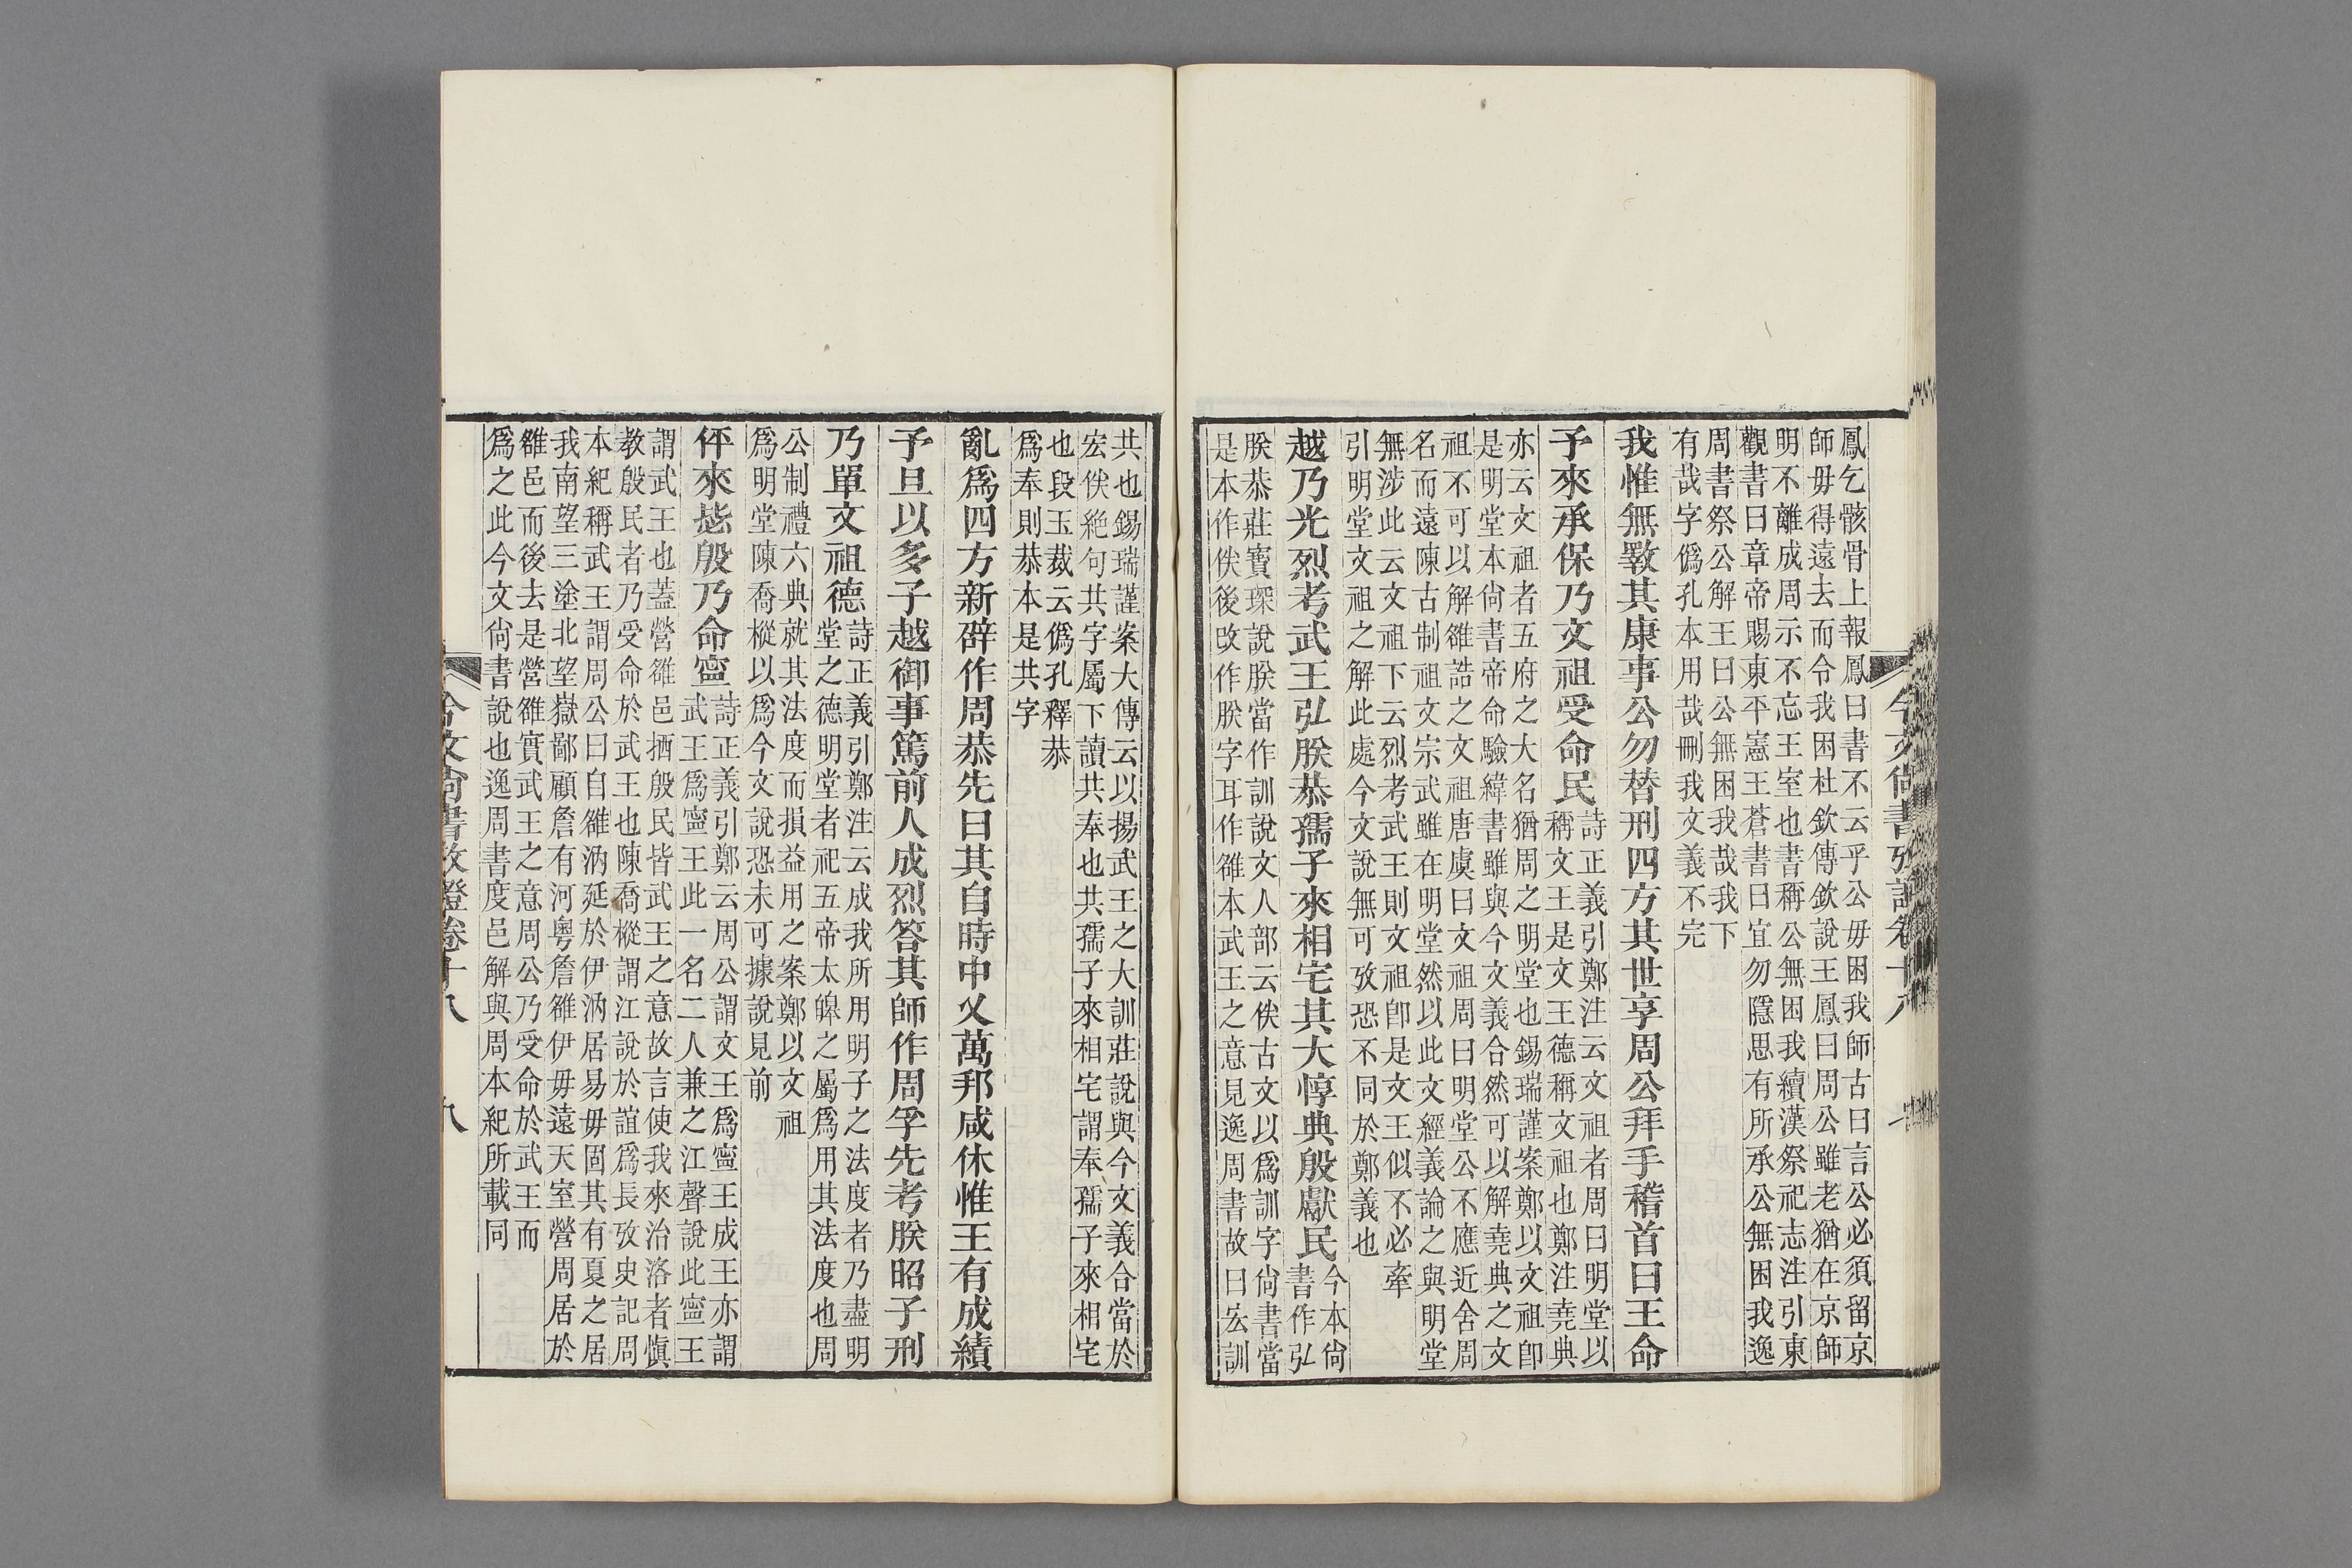 鳳乞骸骨上報鳳曰書不云乎公毋困我師古曰言公必須留京
師毋得遠去而令我困杜欽傳欽說王鳳曰周公雖老猶在京師
明不離成周示不忘王室也書稱公無困我續漢祭祀志注引東
觀書曰章帝賜東平憲王蒼書曰宜勿隱思有所承公無困我逸
周書祭公解王曰公無困我哉我下
有哉字僞孔本用哉刪我文義不完
我惟無斁其康事公勿替刑四方其世享周公拜手稽首曰王命
予來承保乃文祖受命民
詩正義引鄭注云文祖者周曰明堂以
稱文王是文王德稱文祖也鄭注堯典
亦云文祖者五府之大名猶周之明堂也錫瑞謹案鄭以文祖卽
是明堂本尙書帝命驗緯書雖與今文義合然可以解堯典之文
祖不可以解雒誥之文祖唐虞曰文祖周曰明堂公不應近舍周
名而遠陳古制祖文宗武雖在明堂然以此文經義論之與明堂
無涉此云文祖下云烈考武王則文祖卽是文王似不必牽
引明堂文祖之解此處今文說無可攷恐不同於鄭義也
越乃光烈考武王弘朕恭孺子來相宅其大惇典殷獻民
今本尙
書作弘
朕恭莊寶琛說朕當作訓說文人部云佚古文以爲訓字尙書當
是本作佚後改作朕字耳作雒本武王之意見逸周書故曰宏訓
共也錫瑞謹案大傳云以揚武王之大訓莊說與今文義合當於
宏佚絶句共字屬下讀共奉也共孺子來相宅謂奉孺子來相宅
也段玉裁云僞孔釋恭
爲奉則恭本是共字
亂爲四方新辟作周恭先曰其自時中乂萬邦咸休惟王有成績
予旦以多子越御事篤前人成烈答其師作周孚先考朕昭子刑
乃單文祖德
詩正義引鄭注云成我所用明子之法度者乃盡明
堂之德明堂者祀五帝太皞之屬爲用其法度也周
公制禮六典就其法度而損益用之案鄭以文祖
爲明堂陳喬樅以爲今文說恐未可據說見前
伻來毖殷乃命寍
詩正義引鄭云周公謂文王爲寍王成王亦謂
武王爲寍王此一名二人兼之江聲說此寍王
謂武王也蓋營雒邑㧗殷民皆武王之意故言使我來治洛者愼
教殷民者乃受命於武王也陳喬樅謂江說於誼爲長攷史記周
本紀稱武王謂周公曰自雒汭延於伊汭居易毋固其有夏之居
我南望三塗北望嶽鄙顧詹有河粵詹雒伊毋遠天室營周居於
雒邑而後去是營雒實武王之意周公乃受命於武王而
爲之此今文尙書說也逸周書度邑解與周本紀所載同
今文尙書攷證卷十八
八